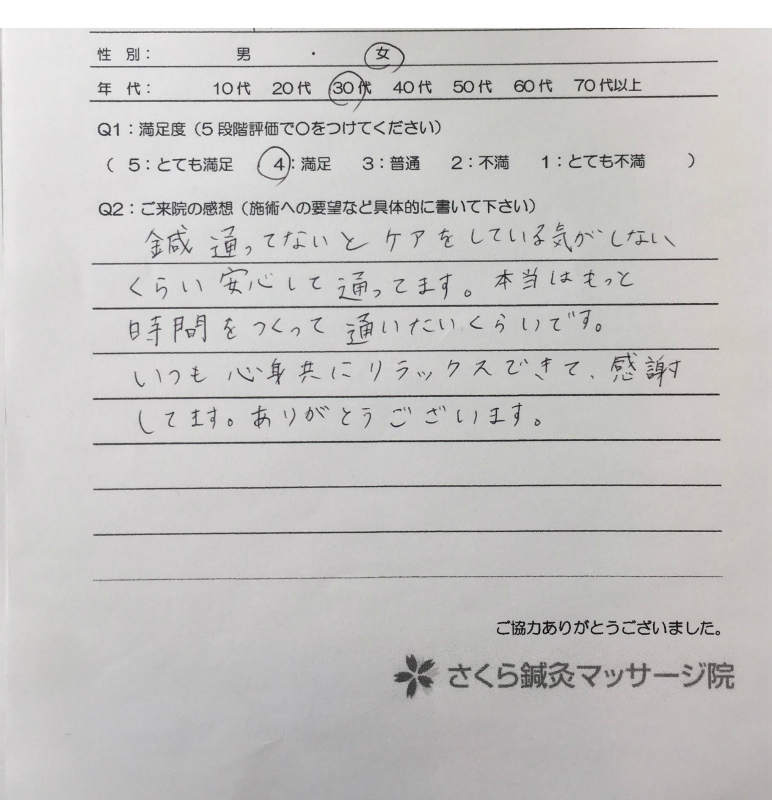 性 別： 男 ・ 女
年 代： 10代 20代 30代 40代 50代 60代 70代以上
Q1：満足度（5段階評価で〇をつけてください）
（ 5：とても満足 4：満足 3：普通 2：不満 1：とても不満 ）
Q2：ご来院の感想（施術への要望など具体的に書いて下さい）
鍼 通ってないと ケアをしている気がしない
くらい 安心して 通ってます。本当はもっと
時間をつくって 通いたいくらいです。
いつも 心身共にリラックスできて、感謝
してます。ありがとうございます。
ご協力ありがとうございました。
さくら鍼灸マッサージ院